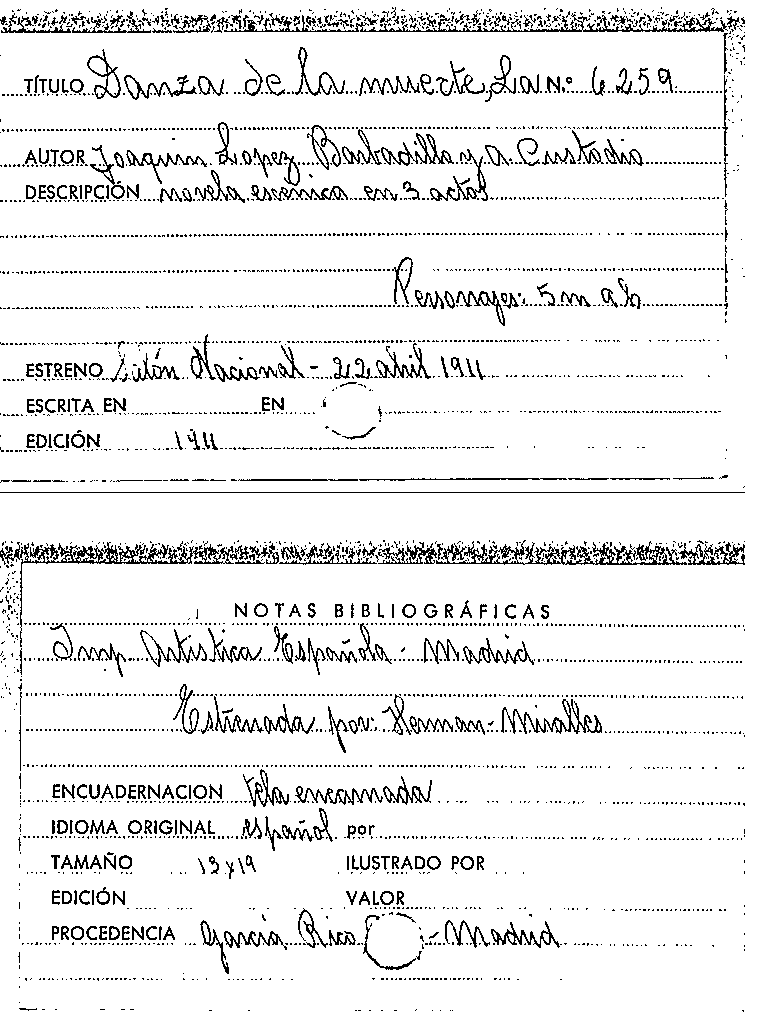 TÍTULO Danza de la muerte, La N.º 6259
AUTOR Joaquin Lopez Barbadillo y A. Custodio
DESCRIPCIÓN novela escénica en 3 actos
Personajes: 5 m 9 h
ESTRENO Salón Nacional - 22 abril 1911
ESCRITA EN EN
EDICIÓN 1911
NOTAS BIBLIOGRÁFICAS
Imp. Artistica Española - Madrid
Estrenada por: Herman-Miralles
ENCUADERNACION tela encarnada
IDIOMA ORIGINAL español por
TAMAÑO 13x19 ILUSTRADO POR
EDICIÓN VALOR
PROCEDENCIA García Rico - Madrid